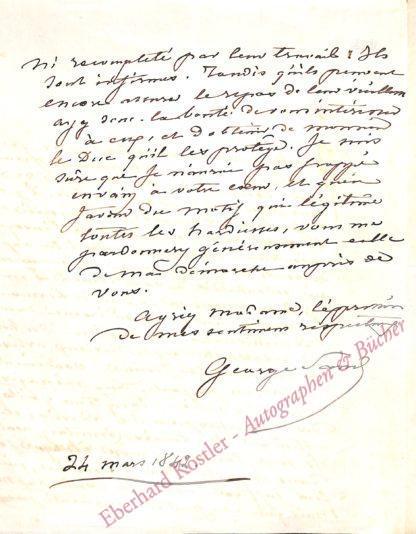 ni recompleté par leur travail : Ils
sont infirmes. Tandis qu'ils peuvent
encore assurer le repos de leur vieillesse
ayez donc la bonté de vous intéresser
à eux, et d'obtenir de monsieur
le Duc qu'il les protège. Je suis
sûre que je n'aurai pas frappé
envain à votre cœur, et qu'en
faveur du motif qui légitime
toutes les hardiesses, vous me
pardonnerez généreusement celle
de ma démarche auprès de
vous.
Agréez madame, l'expression
de mes sentimens respectueux
George Sand
24 mars 184
Eberhard Köstler - Autographen & Bücher